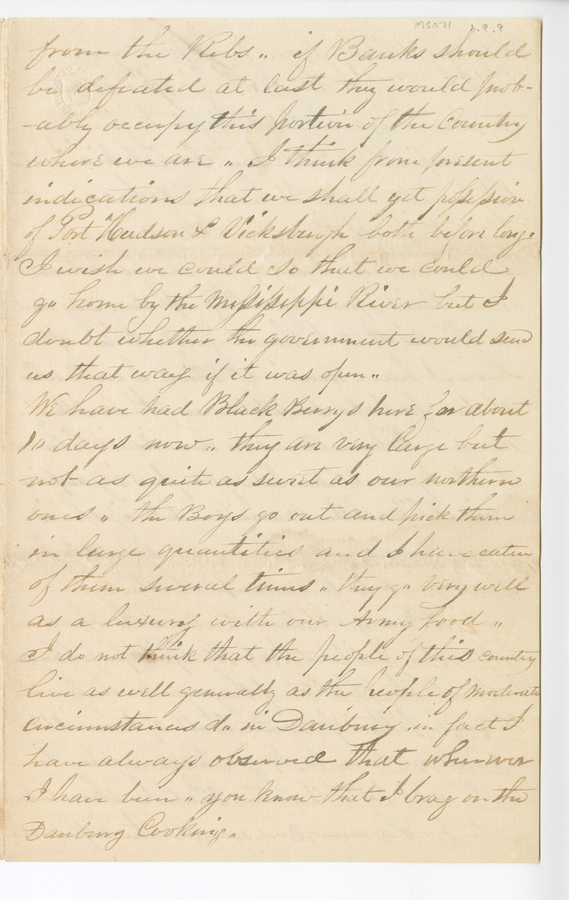 MS071 2.9.9
from the Rebs„ if Banks should
be defeated at last they would prob-
-ably occupy this portion of the Country
where we are „ I think from present
indications that we shall get possession
of Port Hudson & Vicksburgh both before long.
I wish we could so that we could
go home by the Mississippi River but I
doubt whether the government would send
us that way if it was open„
We have had Black Berrys here for about
10 days now„ they are very large but
not as quite as sweet as our northern
ones „ the Boys go out and pick them
in large quantities and I have eaten
of them several times „ they go very well
as a luxury with our Army food „
I do not think that the people of this country
live as well generally as the People of moderate
circumstances do in Danbury in fact I
have always observed that wherever
I have been „ you know that I brag on the
Danbury Cooking„